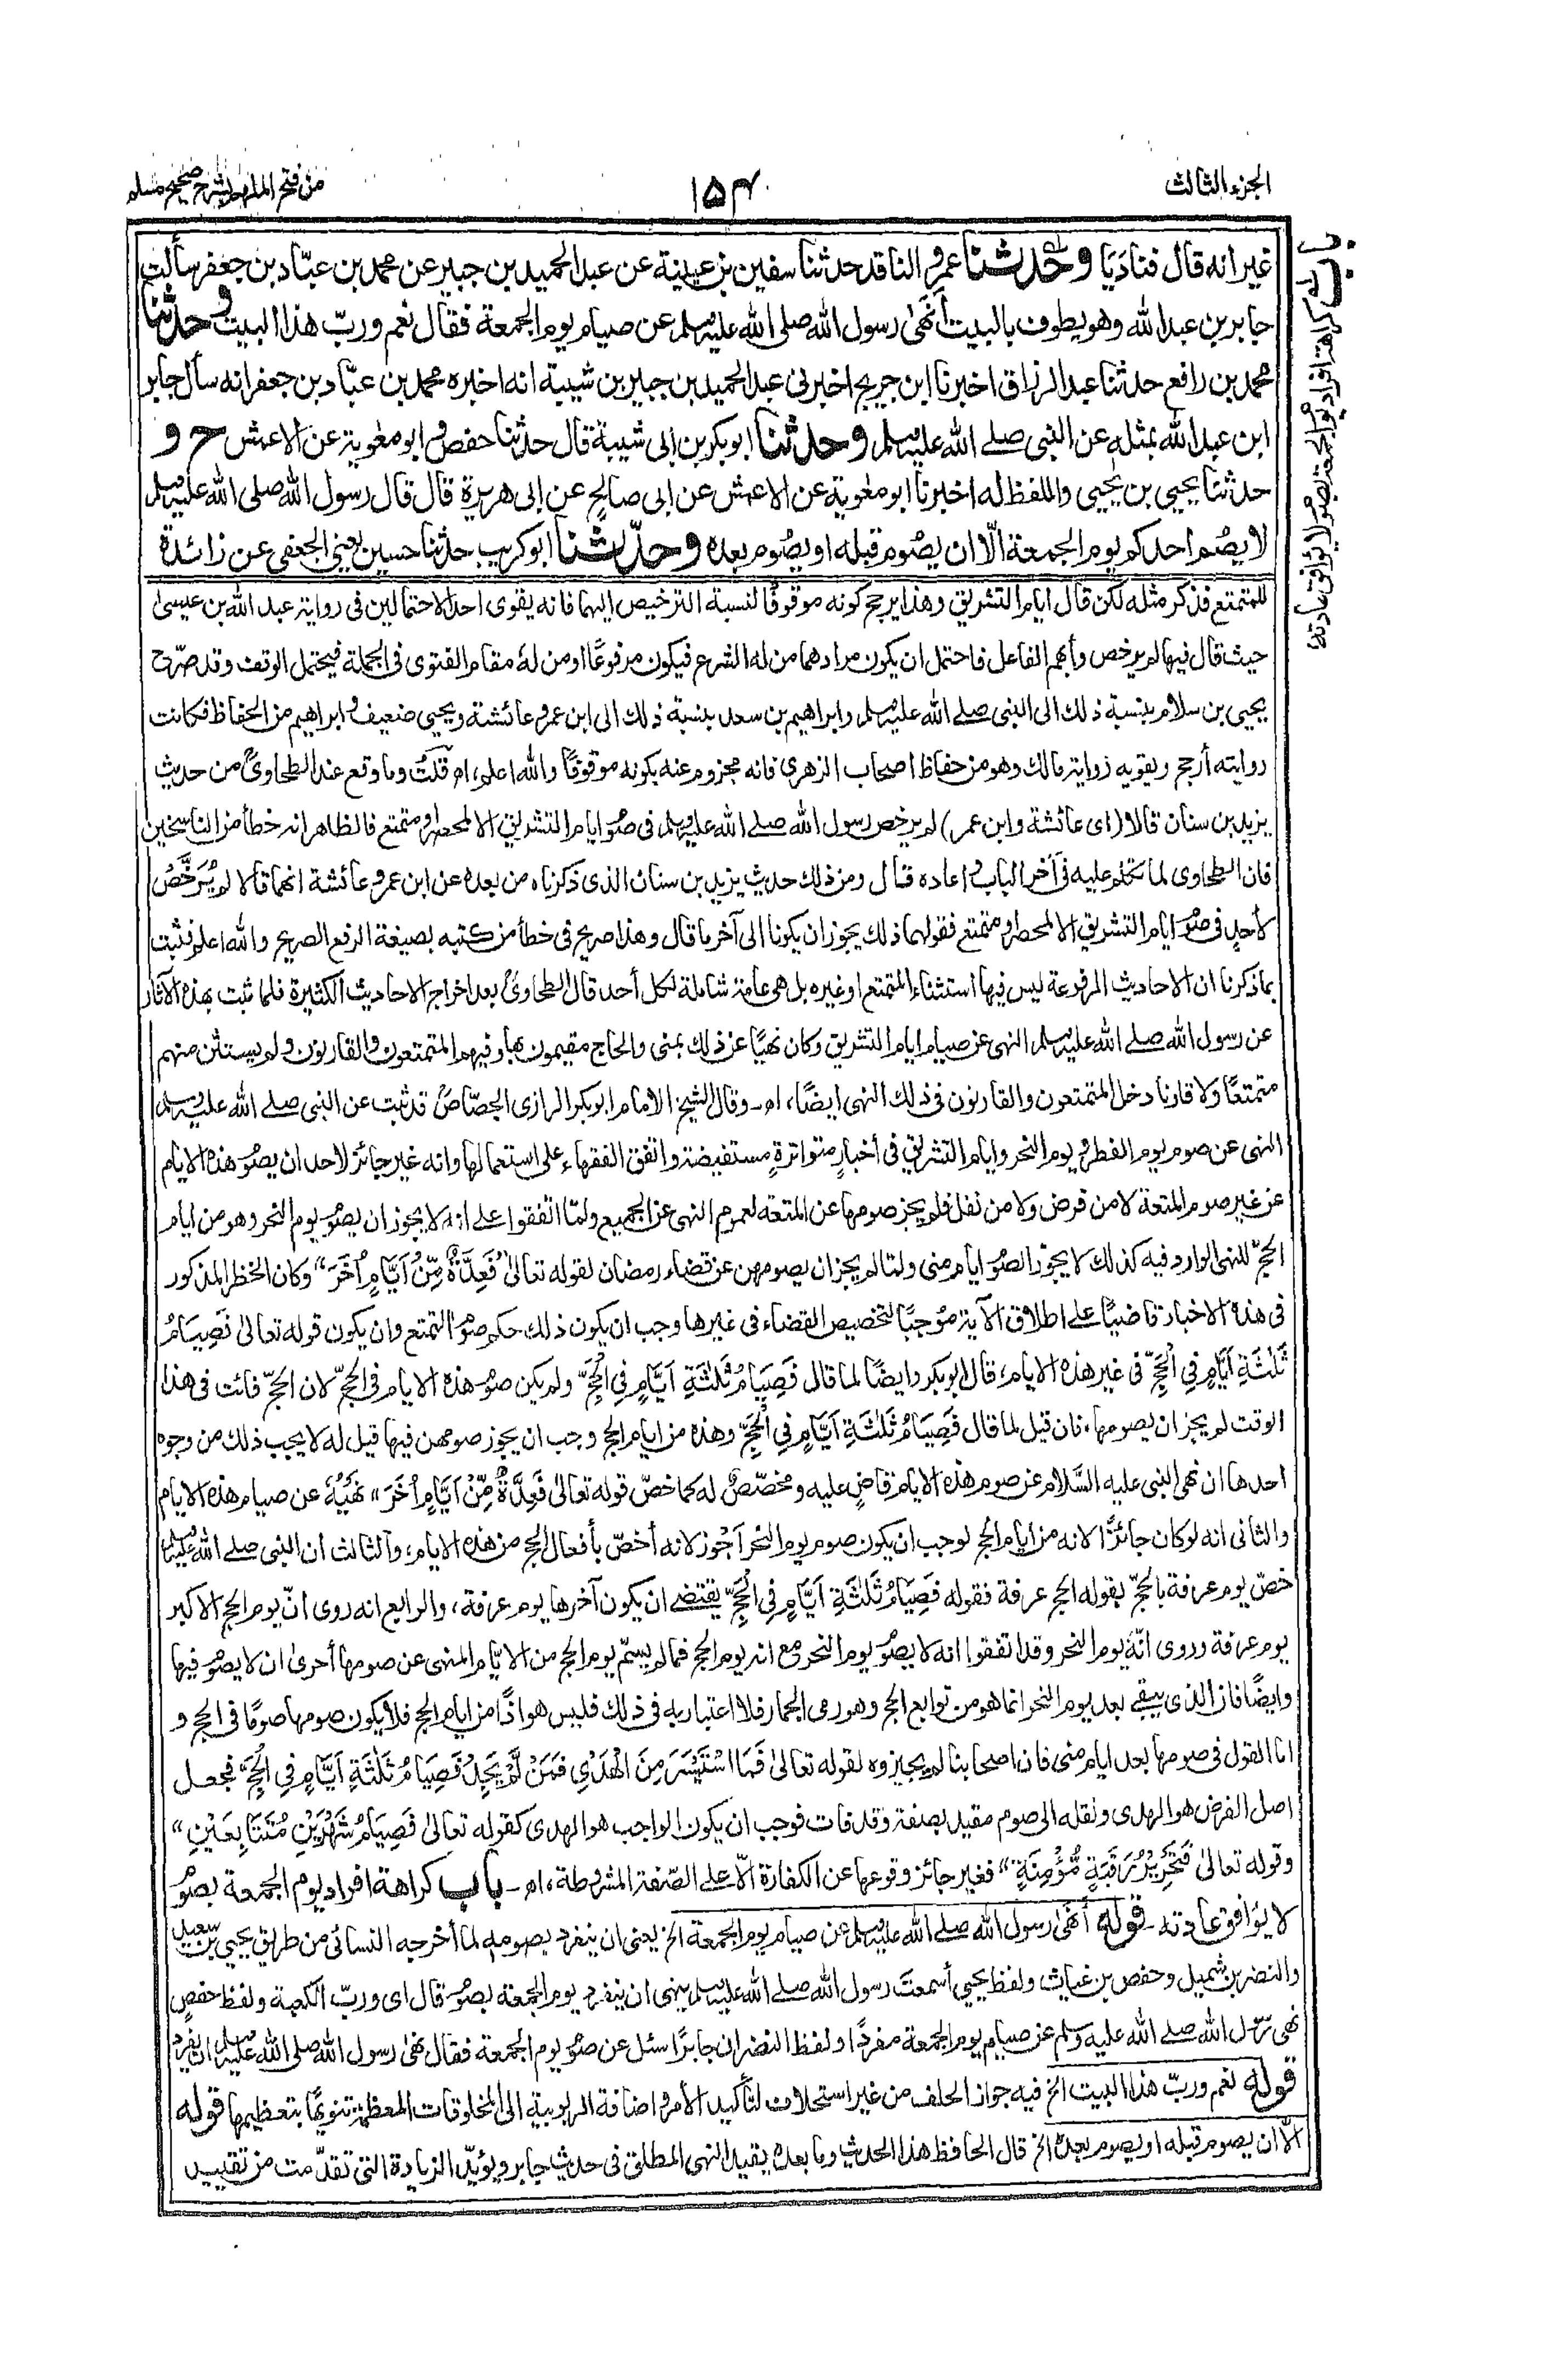 الجزء الثالث
١٥٤
من فتح الملهم بشرح صحيح مسلم
باب كراهة افراد يوم الجمعة بصوم لا يوافق عادته
غير انه قال فناديا وحدثنا عمرو الناقد حدثنا سفين بن عيينة عن عبد الحميد بن جبير عن محمد بن عبّاد بن جعفر سألت
جابر بن عبد الله وهو يطوف بالبيت أنهىٰ رسول الله صلى الله عليه وسلم عن صيام يوم الجمعة فقال نعم وربّ هذا البيت وحدثنا
محمد بن رافع حدثنا عبد الرزاق اخبرنا ابن جريج اخبرني عبد الحميد بن جبير بن شيبة انه اخبره محمد بن عبّاد بن جعفر انه سأل جابر
ابن عبد الله بمثله عن النبي صلے الله عليه وسلم وحدثنا ابو بكر بن ابى شيبة قال حدثنا حفص و ابو معٰوية عن الاعمش ح و
حدثنا يحيى بن يحيى واللفظ له اخبرنا ابو معٰوية عن الاعمش عن ابى صالح عن ابى هريرة قال قال رسول الله صلى الله عليه وسلم
لا يصُم احدكم يوم الجمعة الّا ان يصُوم قبله او يصُوم بعده وحدّثنا ابو كريب حدثنا حسين يعنى الجعفى عن زائدة
للمتمتع فذكر مثله لكن قال ايام التشريق وهذا يرجح كونه موقوفًا لنسبة الترخيص اليهما فانه يقوى احد الاحتمالين فى رواية عبد الله بن عيسىٰ
حيث قال فيها لم يرخص وأبهم الفاعل فاحتمل ان يكون مرادهما من له الشرع فيكون مرفوعًا او من لهٗ مقام الفتوى فى الجملة فيحتمل الوقف وقد صرّح
يحيى بن سلام بنسبة ذلك الى النبى صلے الله عليه وسلم وابراهيم بن سعد بنسبة ذلك الى ابن عمر و عائشة ويحيى ضعيف و ابراهيم من الحفاظ فكانت
روايته أرجح ويقويه رواية مالك وهو من حفاظ اصحاب الزهرى فانه مجزوم عنه بكونه موقوفًا والله اعلم، اه قلت وما وقع عند الطحاوىؒ من حديث
يزيد بن سنان قالا (اى عائشة وابن عمر) لم يرخص رسول الله صلے الله عليه وسلم فى صوم ايام التشريق الا لمحصر او متمتع فالظاهر انه خطأ من الناسخين
فان الطحاوى لما تكلم عليه فى آخر الباب و اعاده قال ومن ذلك حديث يزيد بن سنان الذى ذكرناه من بعده عن ابن عمر و عائشة انهما قالا لم يُرَخَّصْ
لأحدٍ فى صوم ايام التشريق الا لمحصر او متمتع فقولهما ذلك يجوز ان يكونا الى آخر ما قال وهذا صريح فى خطأ من كتبه بصيغة الرفع الصريح والله اعلم فثبت
بما ذكرنا ان الاحاديث المرفوعة ليس فيها استثناء المتمتع او غيره بل هى عامة شاملة لكل أحد قال الطحاوىؒ بعد اخراج الاحاديث الكثيرة فلما ثبت بهذه الآثار
عن رسول الله صلے الله عليه وسلم النهى عن صيام ايام التشريق وكان نهيًا عن ذلك بمنى والحاج مقيمون بها وفيهم المتمتعون والقارنون ولم يستثن منهم
متمتعًا ولا قارنا دخل المتمتعون والقارنون فى ذلك النهى ايضًا، اه۔ وقال الشيخ الامام ابو بكر الرازى الجصّاصؒ قد ثبت عن النبى صلے الله عليه وسلم
النهى عن صوم يوم الفطر و يوم النحر وايام التشريق فى أخبارٍ متواترةٍ مستفيضة واتفق الفقهاء على استعمالها وانه غير جائز لاحد ان يصوم هذه الايام
عن غير صوم المتعة لا من فرض ولا من نفل فلم يجز صومها عن المتعة لعموم النهى عن الجميع ولمّا اتّفقوا على انه لا يجوز ان يصوم يوم النحر وهو من ايام
الحجّ للنهى الوارد فيه كذلك لا يجوّز الصوم ايام منى ولمّا لم يجز ان يصومهن عن قضاء رمضان لقوله تعالىٰ فَعِدَّةٌ مِّنْ اَيَّامٍ اُخَرَ" وكان الحظر المذكور
فى هذه الاخبار قاضيًا على اطلاق الآية موْجبًا لتخصيص القضاء فى غيرها وجب ان يكون ذلك حكم صوم التمتع وان يكون قوله تعالىٰ فَصِيَامُ
ثَلٰثَةِ اَيَّامٍ فِي الْحَجِّ فى غير هذه الايام، قال ابو بكر وايضًا لما قال فَصِيَامُ ثَلٰثَةِ اَيَّامٍ فِي الْحَجِّ ولم يكن صوم هذه الايام فى الحجّ لان الحجّ فائت فى هذا
الوقت لم يجز ان يصومها، فان قيل لما قال فَصِيَامُ ثَلٰثَةِ اَيَّامٍ فِي الْحَجِّ وهذه من ايام الحج وجب ان يجوز صومهن فيها قيل له لا يجب ذلك من وجوه
احدها ان نهى النبى عليه السَّلام عن صوم هذه الايام قاضٍ عليه ومخصّصٌ له كما خصّ قوله تعالىٰ فَعِدَّةٌ مِّنْ اَيَّامٍ اُخَرَ" نَهْيُهٗ عن صيام هذه الايام
والثانى انه لو كان جائزًا لانه من أيام الحج لوجب ان يكون صوم يوم النحر أجْوز لانه أخصّ بأفعال الحج من هذه الايام، والثالث أن النبى صلے الله عليه وسلم
خصّ يوم عرفة بالحجّ بقوله الحج عرفة فقوله فَصِيَامُ ثَلٰثَةِ اَيَّامٍ فِي الْحَجِّ يقتضے ان يكون آخرها يوم عرفة، والرابع انه روى انّ يوم الحج الاكبر
يوم عرفة وروى انّهٗ يوم النحر وقد اتفقوا انه لا يصوم يوم النحر مع انه يوم الحج فما لم يسمّ يوم الحج من الايّام المنهى عن صومها أحرىٰ ان لا يصوم فيها
وايضًا فان الذى يبقے بعد يوم النحر انما هو من توابع الحج وهو رمى الجمار فلا اعتبار به فى ذلك فليس هو اذًا من ايام الحج فلا يكون صومها صومًا فى الحج و
اما القول فى صومها بعد ايام منى فان اصحابنا لم يجيزوه لقوله تعالىٰ فَمَا اسْتَيْسَرَ مِنَ الْهَدْىِ فَمَنْ لَّمْ يَجِدْ فَصِيَامُ ثَلٰثَةِ اَيَّامٍ فِي الْحَجِّ" فجعل
اصل الفرض هو الهدى ونقله الى صوم مقيد بصفة وقد فات فوجب ان يكون الواجب هو الهدى كقوله تعالىٰ فَصِيَامُ شَهْرَيْنِ مُتَتَابِعَيْنِ"
وقوله تعالىٰ فَتَحْرِيْرُ رَقَبَةٍ مُّؤْمِنَةٍ" فغير جائز وقوعها عن الكفارة الّا علے الصّفة المشروطة، اه۔ باب كراهة افراد يوم الجمعة بصوم
لا يؤافق عادته۔ قوله أنهىٰ رسول الله صلے الله عليه وسلم عن صيام يوم الجمعة الخ يعنى ان ينفرد بصومه لما أخرجه النسائى من طريق يحيى بن سعيد
والنضر بن شميل وحفص بن غياث ولفظ يحيى أسمعتَ رسول الله صلے الله عليه وسلم ينهى ان ينفرد يوم الجمعة بصوم قال اى وربّ الكعبة ولفظ حفصٍ
نهى رسول الله صلے الله عليه وسلم عن صيام يوم الجمعة مفردًا ولفظ النضر ان جابرًا سئل عن صوم يوم الجمعة فقال نهىٰ رسول الله صلى الله عليه وسلم ان يفرد
قوله نعم وربّ هذا البيت الخ فيه جواز الحلف من غير استحلاف لتأكيد الأمر و اضافة الربوبية الى المخلوقات المعظمة تنويهًا بتعظيمها قوله
الّا ان يصوم قبله او يصوم بعده الخ قال الحافظ هذا الحديث وما بعده يقيد النهى المطلق فى حديث جابر ويؤيّد الزيادة التى تقدّمت من تقييد